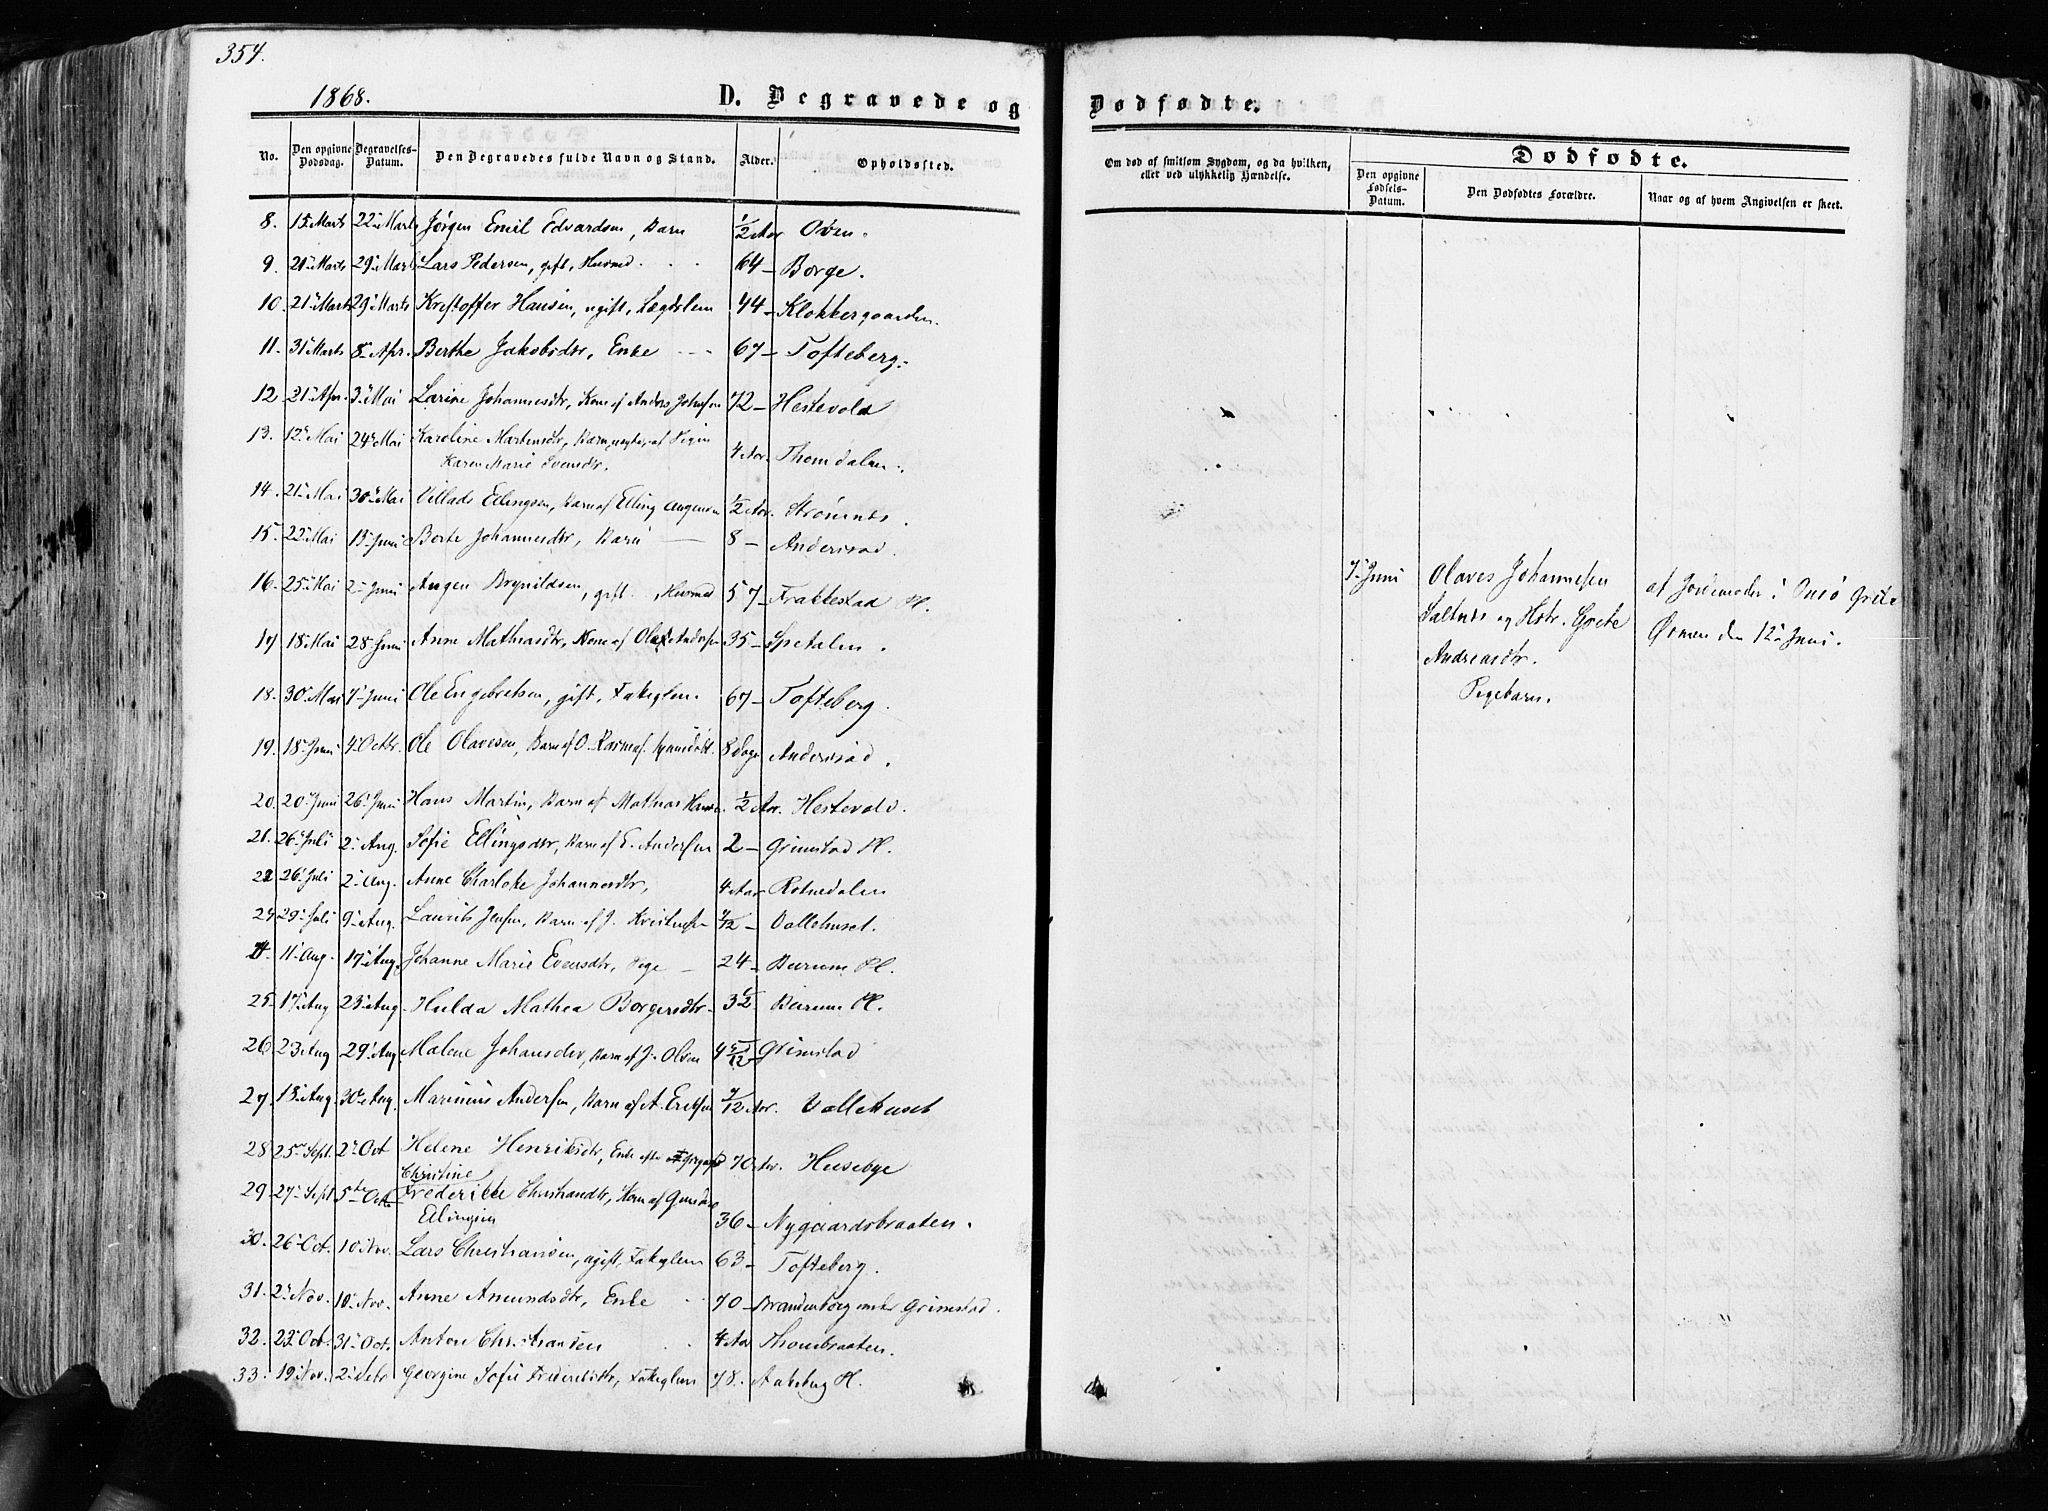 354.
1868.
D. Begravede og Dødfødte.
No. Den opgivne Dødsdag. Begravelses-Datum. Den Begravedes fulde Navn og Stand. Alder. Opholdssted.
Om død af smitsom Sygdom, og da hvilken, eller ved ulykkelig Hændelse.
Dødfødte.
Den opgivne Fødsels-Datum. Den Dødfødtes Forældre. Naar og af hvem Angivelsen er skeet.
8. 15 Marts 22 Marts Jørgen Emil Edvardsen, Barn ½ Aar Oven.
9 21 Marts 29 Marts Lars Pedersen, gift, Husmd 64 – Borge.
10. 21 Marts 29 Marts Kristoffer Hansen, ugift, Lægdslem 44 – Klokkergaarden.
11. 31 Marts 8 Apr. Berthe Jakobsdtr, Enke 67 – Tofteberg.
12 21 Apr. 3 Mai Larine Johannesdtr, Kone af Anders Johnsen 72 – Hestevold
13. 12 Mai 24 Mai Karoline Martensdtr, Barn, af Pigen
Karen Marie Evensdtr. 4 Aar. Thomdalen.
14. 21 Mai 30 Mai Villads Ellingsen, Barn af Elling Augensen ½ Aar. Strømnes.
15. 22 Mai 13 Juni Berte Johannesdtr, Barn 8 – Anderssad.
16. 25 Mai 2 Juni Augen Brynildsen, gift, Husmd 57 – Frakkestad Pl.
17 18 Mai 28 Juni Anne Mathiasdtr, Kone af Ole Andersen 35 – Spetalen.
18. 30 Mai 7 Juni Ole Engebretsen, gift, Fatiglem. 67 – Tofteberg.
19. 18 Juni 4 Octbr. Ole Olavesen, Barn af O. 8 Dage Anderssad.
20. 20 Juni 26 Juni Hans Martin, Barn af Mathias Hansen ½ Aar. Hestevold.
21. 26 Juli 2 Aug. Sofie Ellingsdtr, Barn af E. Andersen 2 – Grimstad Pl.
22 26 Juli 2 Aug. Anne Charlotte Johannesdtr, 4 Aar Rotnedalen
23 29 Juli 9 Aug. Laurits Jensen, Barn af J. Kristensen 7/12 – Vallehuset.
24 11 Aug. 17 Aug. Johanne Marie Evensdtr, Pige 24 – Burum Pl.
25. 17 Aug 23 Aug. Hulda Mathea Borgersdtr. 3½ Burum Pl.
26 23 Aug 29 Aug. Malene Johansdtr, Barn af J. Olsen 4 5/12 – Grimstad
27. 13 Aug 30 Aug. Marinius Andersen, Barn af A. Eriksen 7/12 Aar. Vallehuset
28 25 Sept. 2 Oct Helene Henriksdtr, Enke efter 70 Aar. Husebye
Christine
29 27 Sept 5te Octb Frederikke Christiansdtr, Kone af
Ellingsen 36 – Nygaardsbraaten.
30. 26 Oct. 10 Nov. Lars Christiansen, ugift, Fatiglem 63 – Tofteberg.
31. 2 Nov. 10 Nov. Anne Amundsdtr, Enke 70 – Brandenborg under Grimstad.
32. 23 Oct. 31 Oct. Anton Christiansen 4 Aar Thombraaten.
33. 19 Nov. 2 Febr Georgine Sofie Frederiksdtr, Fatiglem 78. Aakeberg Pl.
7 Juni Olaves Johannesen
Saltnes og Hstr. Grete
Andreasdtr.
Pigebarn.
af Jordemoder i Onsø Grete
Ørmen den 12 Juni.